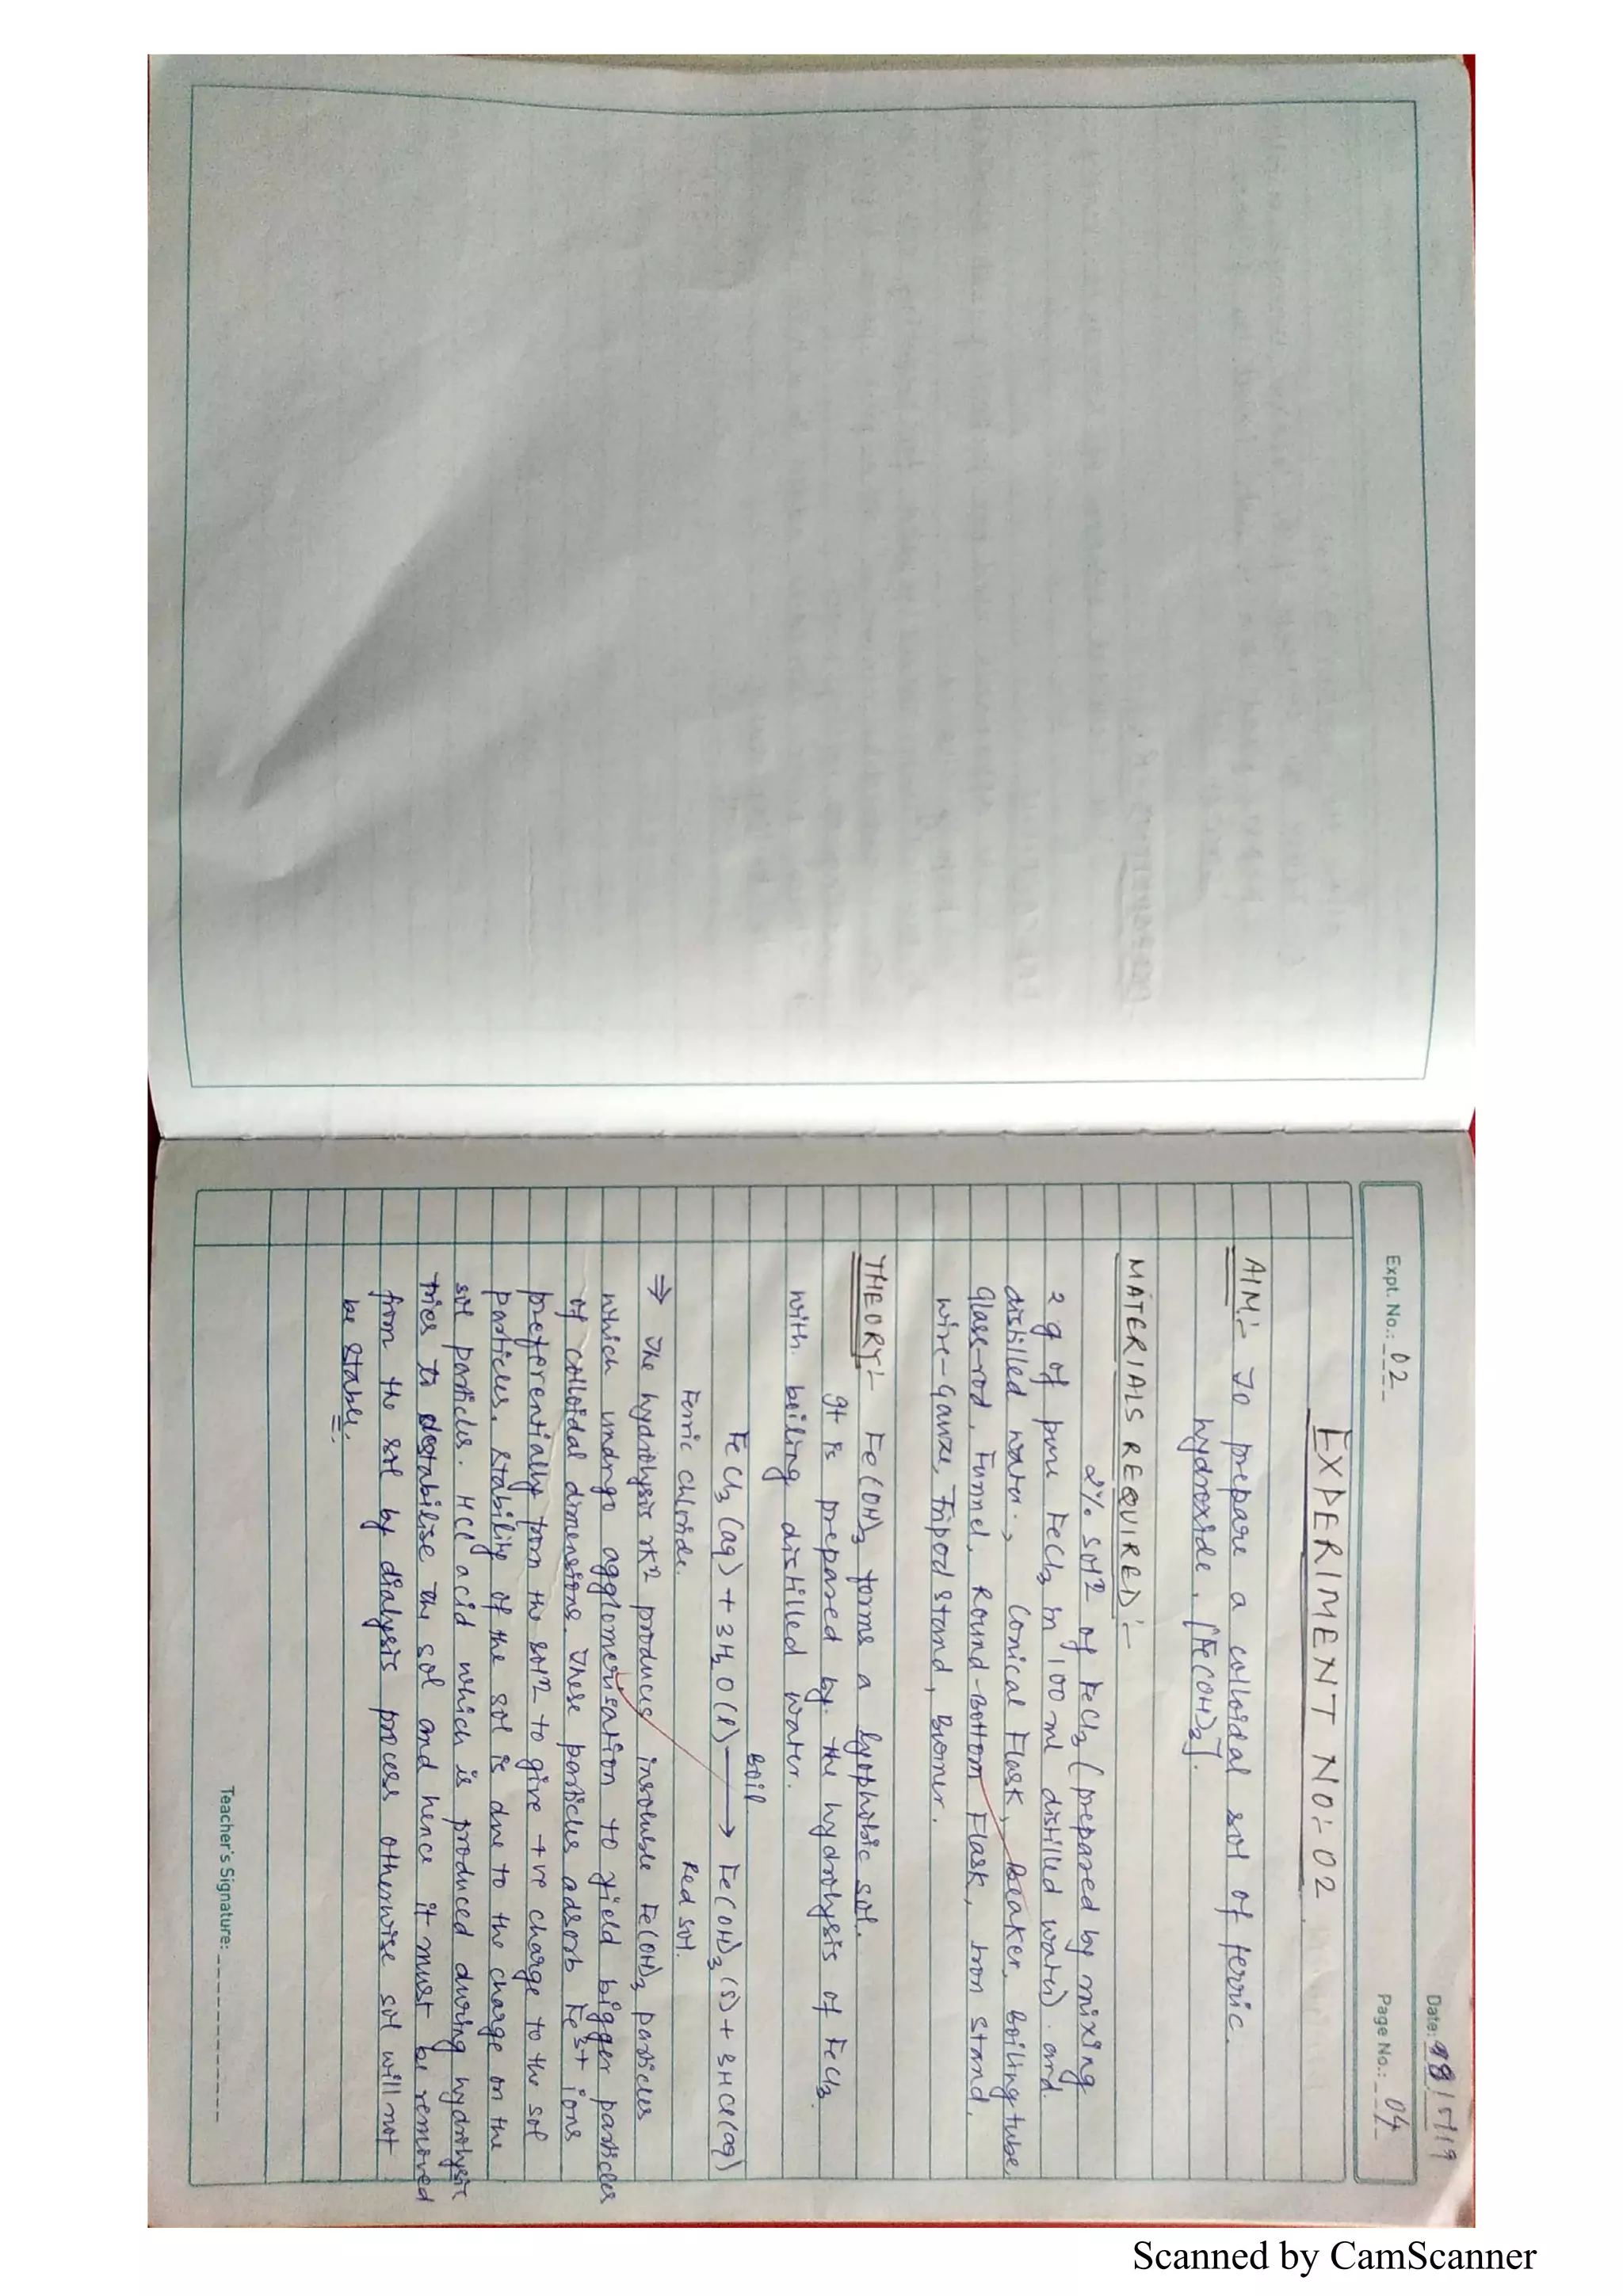 Date: 18/5/19
Expt. No.: 02
Page No.: 04
EXPERIMENT NO:- 02
AIM:- To prepare a colloidal sol of ferric
hydroxide, [Fe(OH)3].
MATERIALS REQUIRED:-
2% solⁿ of FeCl3 (prepared by mixing
2 g of pure FeCl3 in 100 ml distilled water) and
distilled water, Conical Flask, Beaker, Boiling tube,
Glass-rod, Funnel, Round-Bottom Flask, Iron stand,
wire-Gauze, Tripod stand, Burner.
THEORY:- Fe(OH)3 forms a lyophobic sol.
It is prepared by the hydrolysis of FeCl3
with boiling distilled water.
FeCl3 (aq) + 3H2O(l) boil → Fe(OH)3 (s) + 3HCl(aq)
Ferric chloride. Red sol.
⇒ The hydrolysis rxⁿ produces insoluble Fe(OH)3 particles
which undrgo agglomerisation to yield bigger particles
of colloidal dimensions. These particles adsorb Fe3+ ions
preferentially from the solⁿ to give +ve charge to the sol
particles. Stability of the sol is due to the charge on the
sol particles. HCl acid which is produced during hydrolysis
tries to destabilise the sol and hence it must be removed
from the sol by dialysis process otherwise sol will not
be stable.
Teacher's Signature:
Scanned by CamScanner